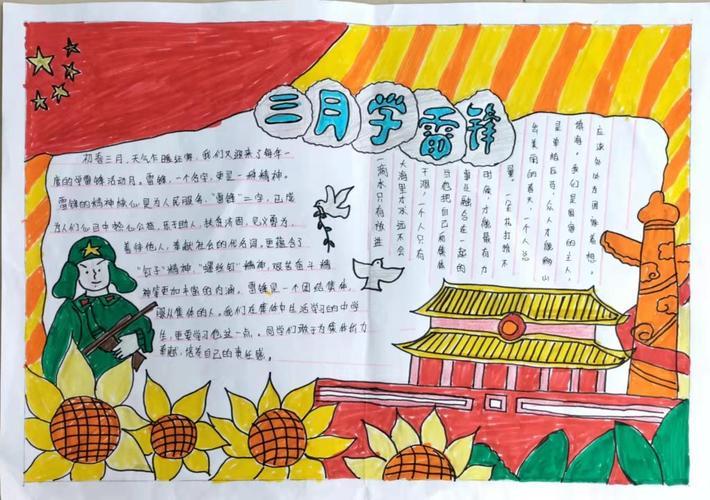 三月学雷锋
初春三月，天气乍暖还寒，我们又迎来了每年一
度的学雷锋活动月。雷锋，一个名字，更是一种精神。
雷锋的精神核心是为人民服务，"雷锋"二字，已成
为人们心目中热心公益、乐于助人、扶贫济困、见义勇为、
善待他人，奉献社会的代名词，更蕴含了
"钉子"精神，"螺丝钉"精神，艰苦奋斗精
神等更加丰富的内涵。雷锋是一个团结集体、
服从集体的人，我们在集体中生活学习的中学
生，更要学习他这一点。同学们敢于为集体出力
奉献，培养自己的责任感。
一滴水只有放进
大海里才永远不会
干涸，一个人只有
当他把自己和集体
事业融合在一起的
时候，才能最有力
量。一朵花打扮不
出美丽的春天，一个人总
是单枪匹马，众人才能移山
填海。我们是国家的主人，
应该处处为国家着想。